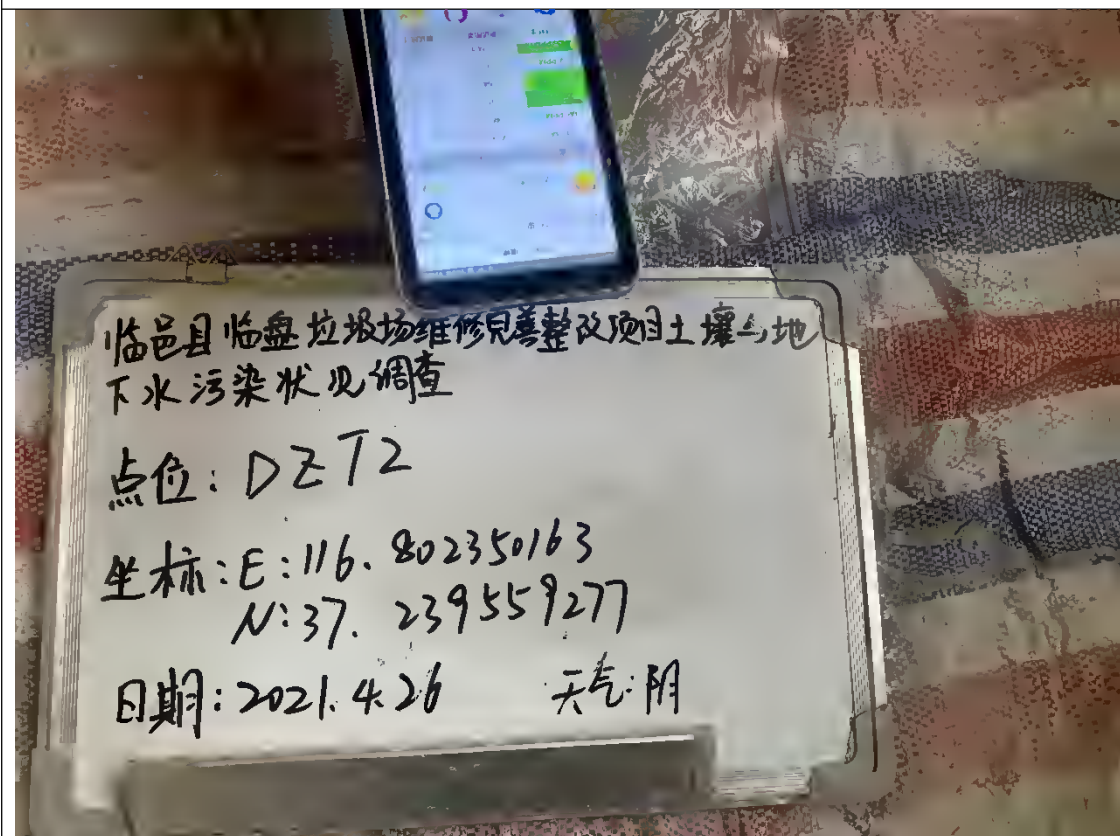 临邑县临盘垃圾场维修完善整改项目土壤与地
下水污染状况调查
点位:DZT2
坐标:E:116.802350163
N:37.239559277
日期:2021.4.26 天气:阴